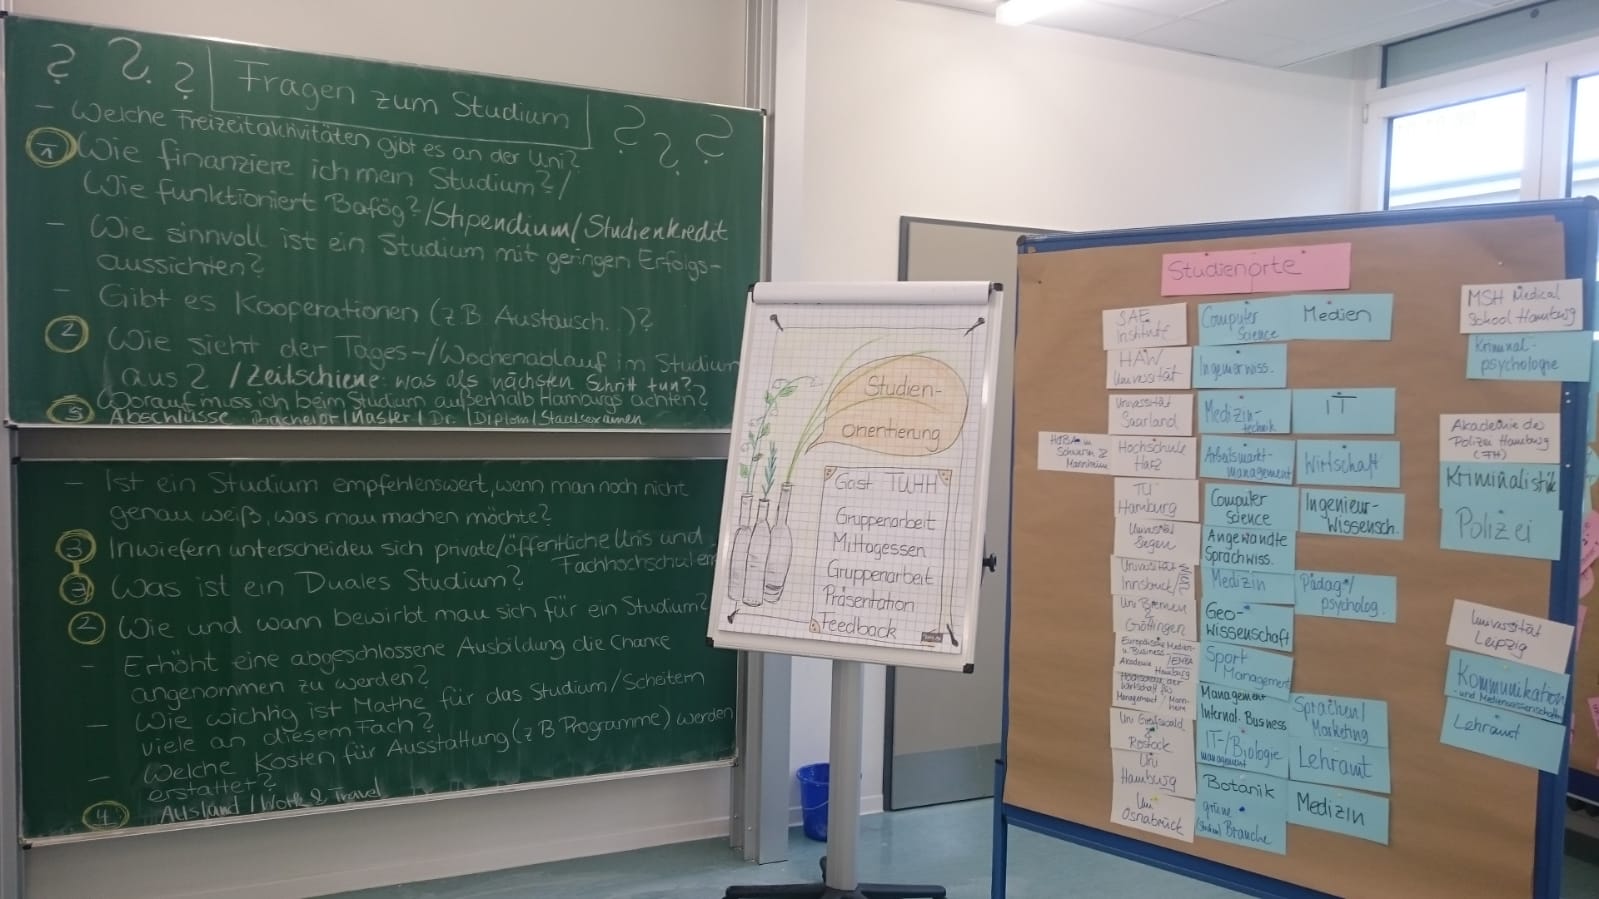 ? ? ? Fragen zum Studium ? ? ?
- Welche Freizeitaktivitäten gibt es an der Uni?
1 Wie finanziere ich mein Studium?/
Wie funktioniert Bafög?/Stipendium/Studienkredit
- Wie sinnvoll ist ein Studium mit geringen Erfolgs-
aussichten?
- Gibt es Kooperationen (z.B Austausch..)?
2 Wie sieht der Tages-/Wochenablauf im Studium
aus? /Zeitschiene: was als nächsten Schritt tun?
Worauf muss ich beim Studium außerhalb Hamburgs achten?
5 Abschlüsse Bachelor/Master/Dr./Diplom/Staatsexamen
- Ist ein Studium empfehlenswert, wenn man noch nicht
genau weiß, was man machen möchte?
3 Inwiefern unterscheiden sich private/öffentliche Unis und
Fachhochschulen
3 Was ist ein Duales Studium?
2 Wie und wann bewirbt man sich für ein Studium?
- Erhöht eine abgeschlossene Ausbildung die Chance
angenommen zu werden?
- Wie wichtig ist Mathe für das Studium/Scheitern
viele an diesem Fach?
- Welche Kosten für Ausstattung (z B Programme) werden
erstattet?
4. Ausland/Work & Travel
Studien-
orientierung
Gast TUHH
Gruppenarbeit
Mittagessen
Gruppenarbeit
Präsentation
Feedback
Studienorte
SAE
Institute
Computer
Science
Medien
HAW
Universität
Ingenieurwiss.
Universität
Saarland
Medizin-
technik
IT
HdBA in
Schwerin &
Mannheim
Hochschule
Harz
Arbeitsmarkt-
management
Wirtschaft
TU
Hamburg
Computer
Science
Ingenieur-
Wissensch.
Universität
Siegen
Angewandte
Sprachwiss.
Universität
Innsbruck/
Wien
Medizin
Pädag*/
psycholog.
Uni Bremen
Göttingen
Geo-
wissenschaft
Europäische Medien-
u. Business-
Akademie /EMBA
Hamburg
Sport
Management
Hochschule der
Wirtschaft für
Management / Mann-
heim
Management
Internat. Business
Sprachen/
Marketing
Uni Greifswald
&
Rostock
IT-/Biologie
management
Lehramt
Uni
Hamburg
Botanik
Medizin
Uni
Osnabrück
grüne
Branche
MSH Medical
School Hamburg
Kriminal-
psychologie
Akademie der
Polizei Hamburg
(FH)
Kriminalistik
Polizei
Universität
Leipzig
Kommunikation
- und Medienwissenschaften
Lehramt